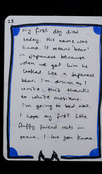 13
My first dog died
today. His name was
Kuma. It means 'bear'
in Japanese because
when we got him he
looked like a Japanese
bear. I'm drunk as I
write this thanks
to white russians.
I'm going to bed now.
I hope my first little
fluffy friend rests in
peace. I love you Kuma